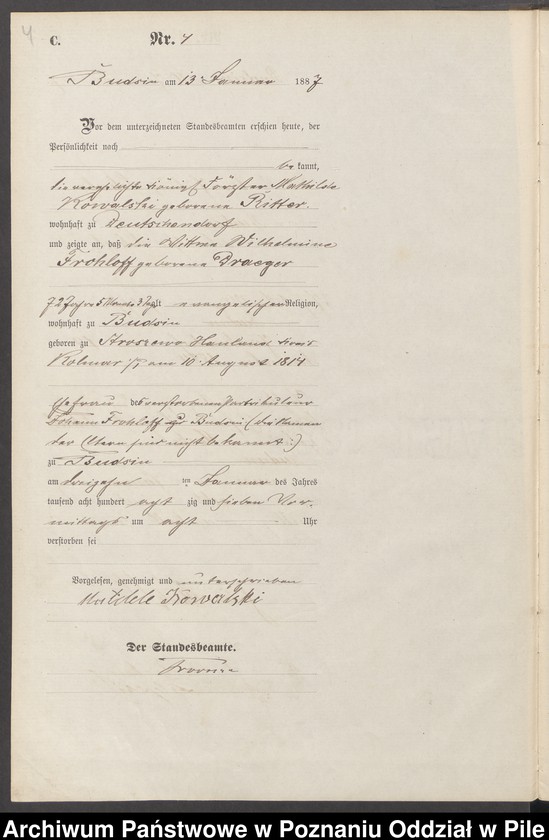 4
C. Nr. 4
Budsin am 13. Januar 1887
Vor dem unterzeichneten Standesbeamten erschien heute, der
Persönlichkeit nach
bekannt,
die verehelichte Königl. Förster Mathilde
Kowalski geborene Ritter
wohnhaft zu Deutschendorf
und zeigte an, daß die Wittwe Wilhelmine
Frohloff geborene Draeger
72 Jahre 5 Monate 3 Tage alt evangelischer Religion,
wohnhaft zu Budsin
geboren zu Strosewo Hauland Kreis
Kolmar i/P am 10. August 1814
Ehefrau des verstorbenen Partikulier
Johann Frohloff zu Budsin (die Namen
der Eltern sind nicht bekannt:)
zu Budsin
am dreizehn ten Januar des Jahres
tausend acht hundert acht zig und sieben Vor-
mittags um acht Uhr
verstorben sei
Vorgelesen, genehmigt und unterschrieben
Matilde Kowalski
Der Standesbeamte.
Archiwum Państwowe w Poznaniu Oddział w Pile